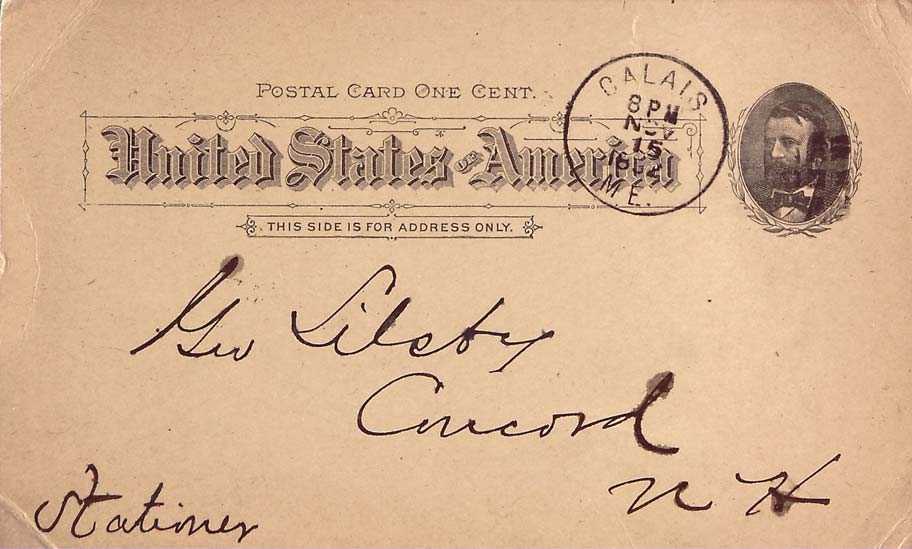 POSTAL CARD ONE CENT.
United States of America
THIS SIDE IS FOR ADDRESS ONLY.
CALAIS
8 PM
NOV
15
1892
ME.
Geo Silsby
Concord
N H
Stationer